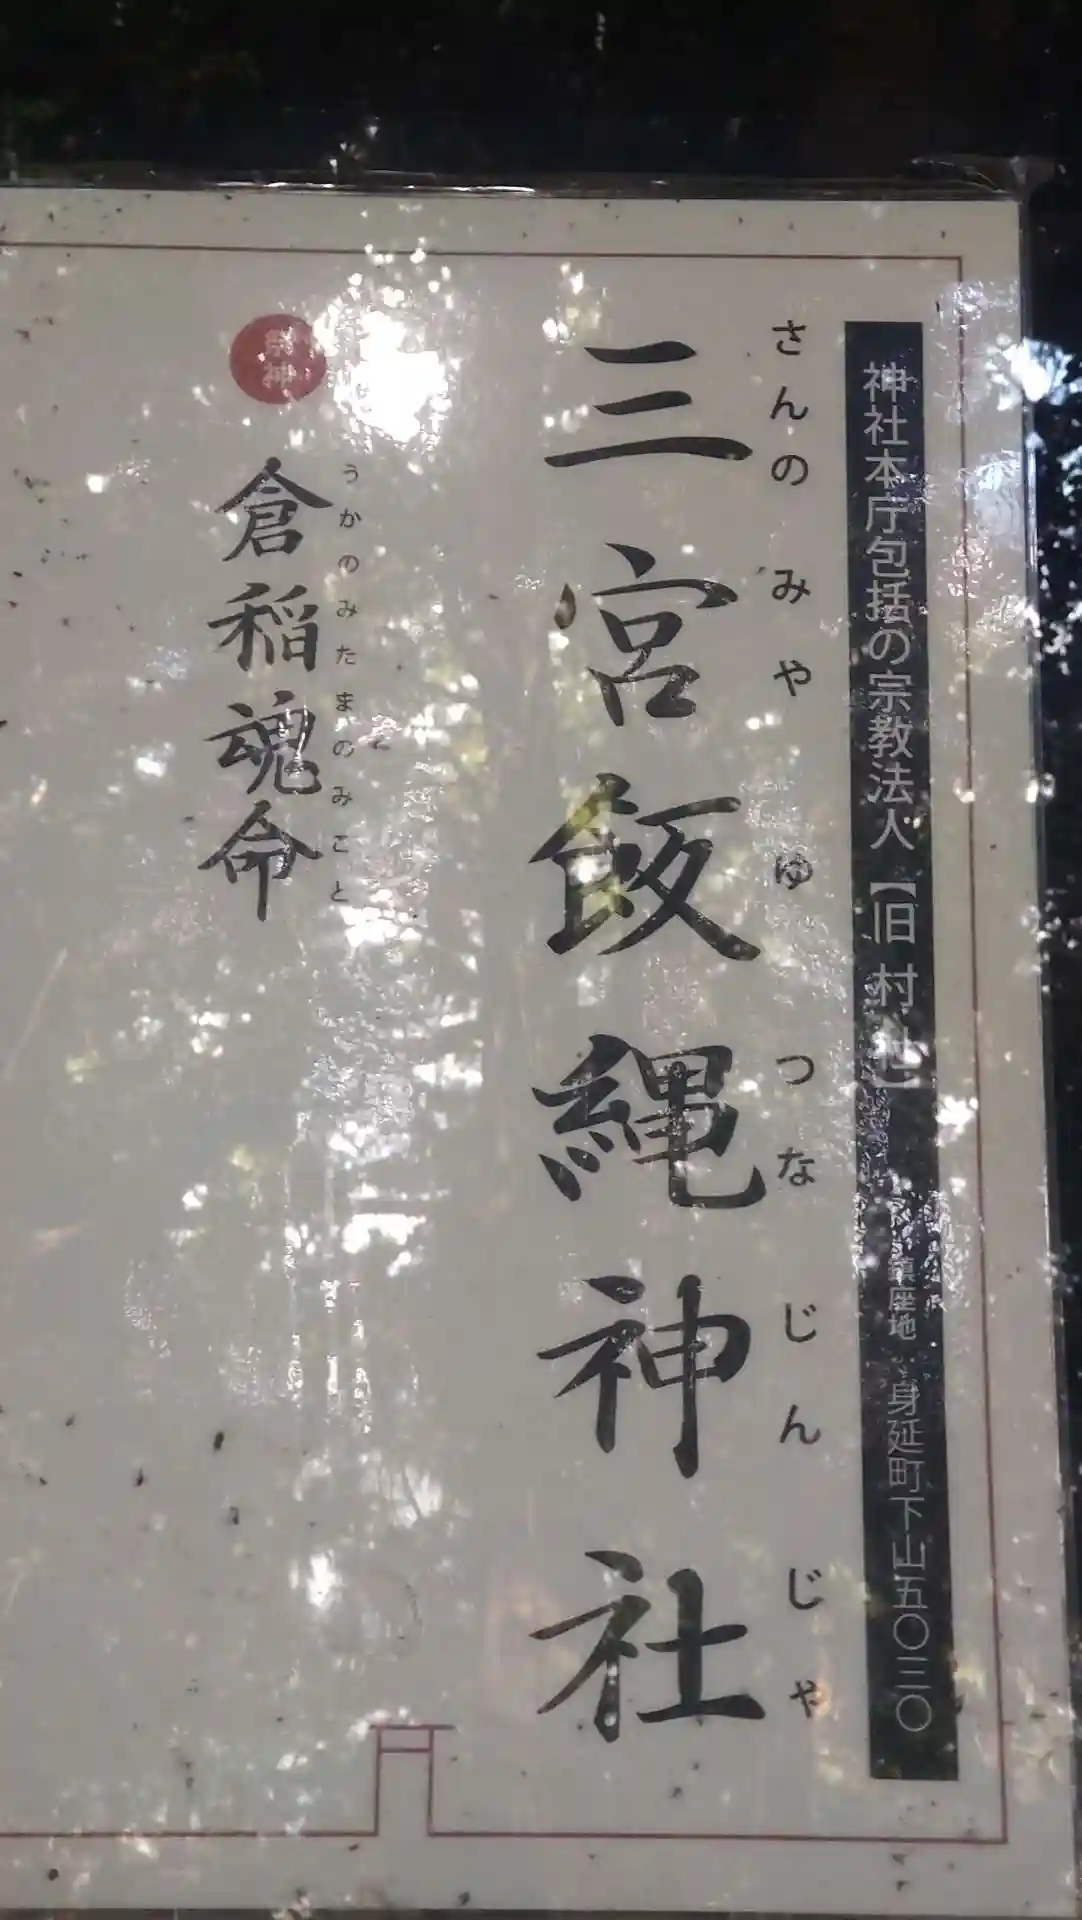 神社本庁包括の宗教法人【旧 村社】 鎮座地 身延町下山五〇三〇
さんのみやゆつなじんじゃ
三宮飯縄神社
祭神
うかのみたまのみこと
倉稲魂命